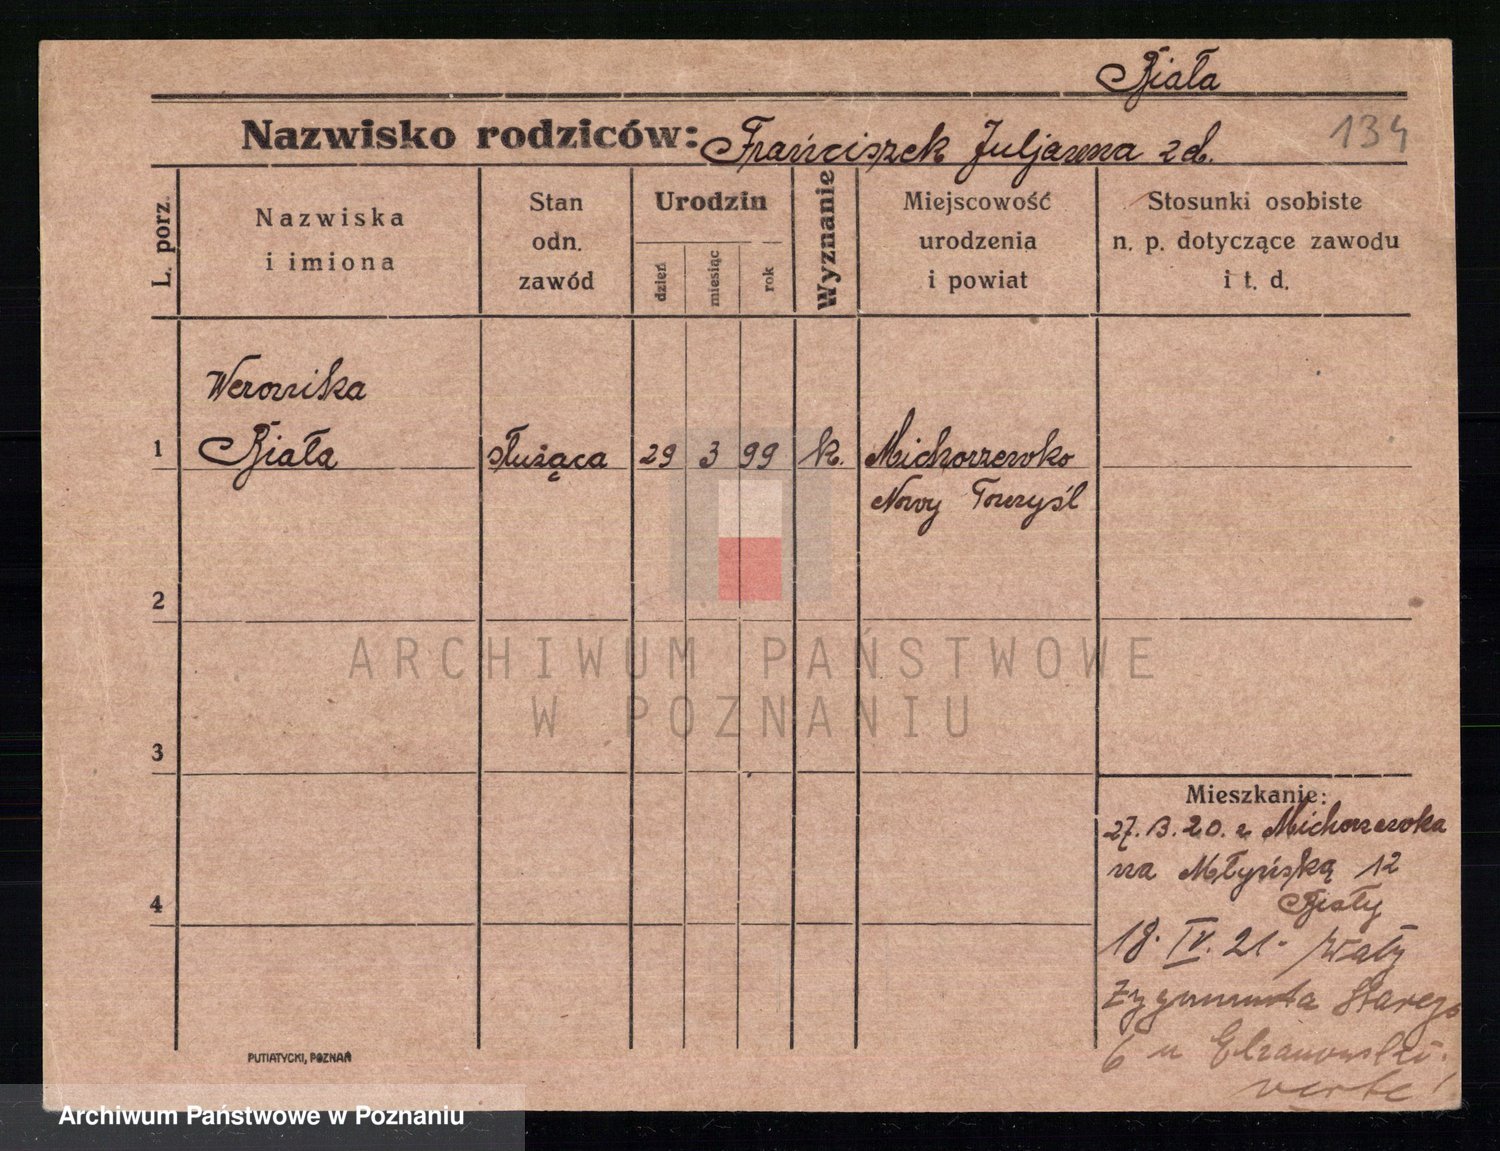 Biała
Nazwisko rodziców: Franciszek Juljanna zd. 134
L. porz.
Nazwiska
i imiona
Stan
odn.
zawód
Urodzin
dzień
miesiąc
rok
Wyznanie
Miejscowość
urodzenia
i powiat
Stosunki osobiste
n. p. dotyczące zawodu
i t. d.
Weronika
1 Biała służąca 29 3 99 k. Michorzewko
Nowy Tomyśl
2
3
4
Mieszkanie:
27. 3. 20. z Michorzewka
na Młyńską 12
Biały
18. IV. 21. Wały
Zygmunta Starego
6 u
verte!
PUTIATYCKI, POZNAŃ
ARCHIWUM PAŃSTWOWE
W POZNANIU
Archiwum Państwowe w Poznaniu